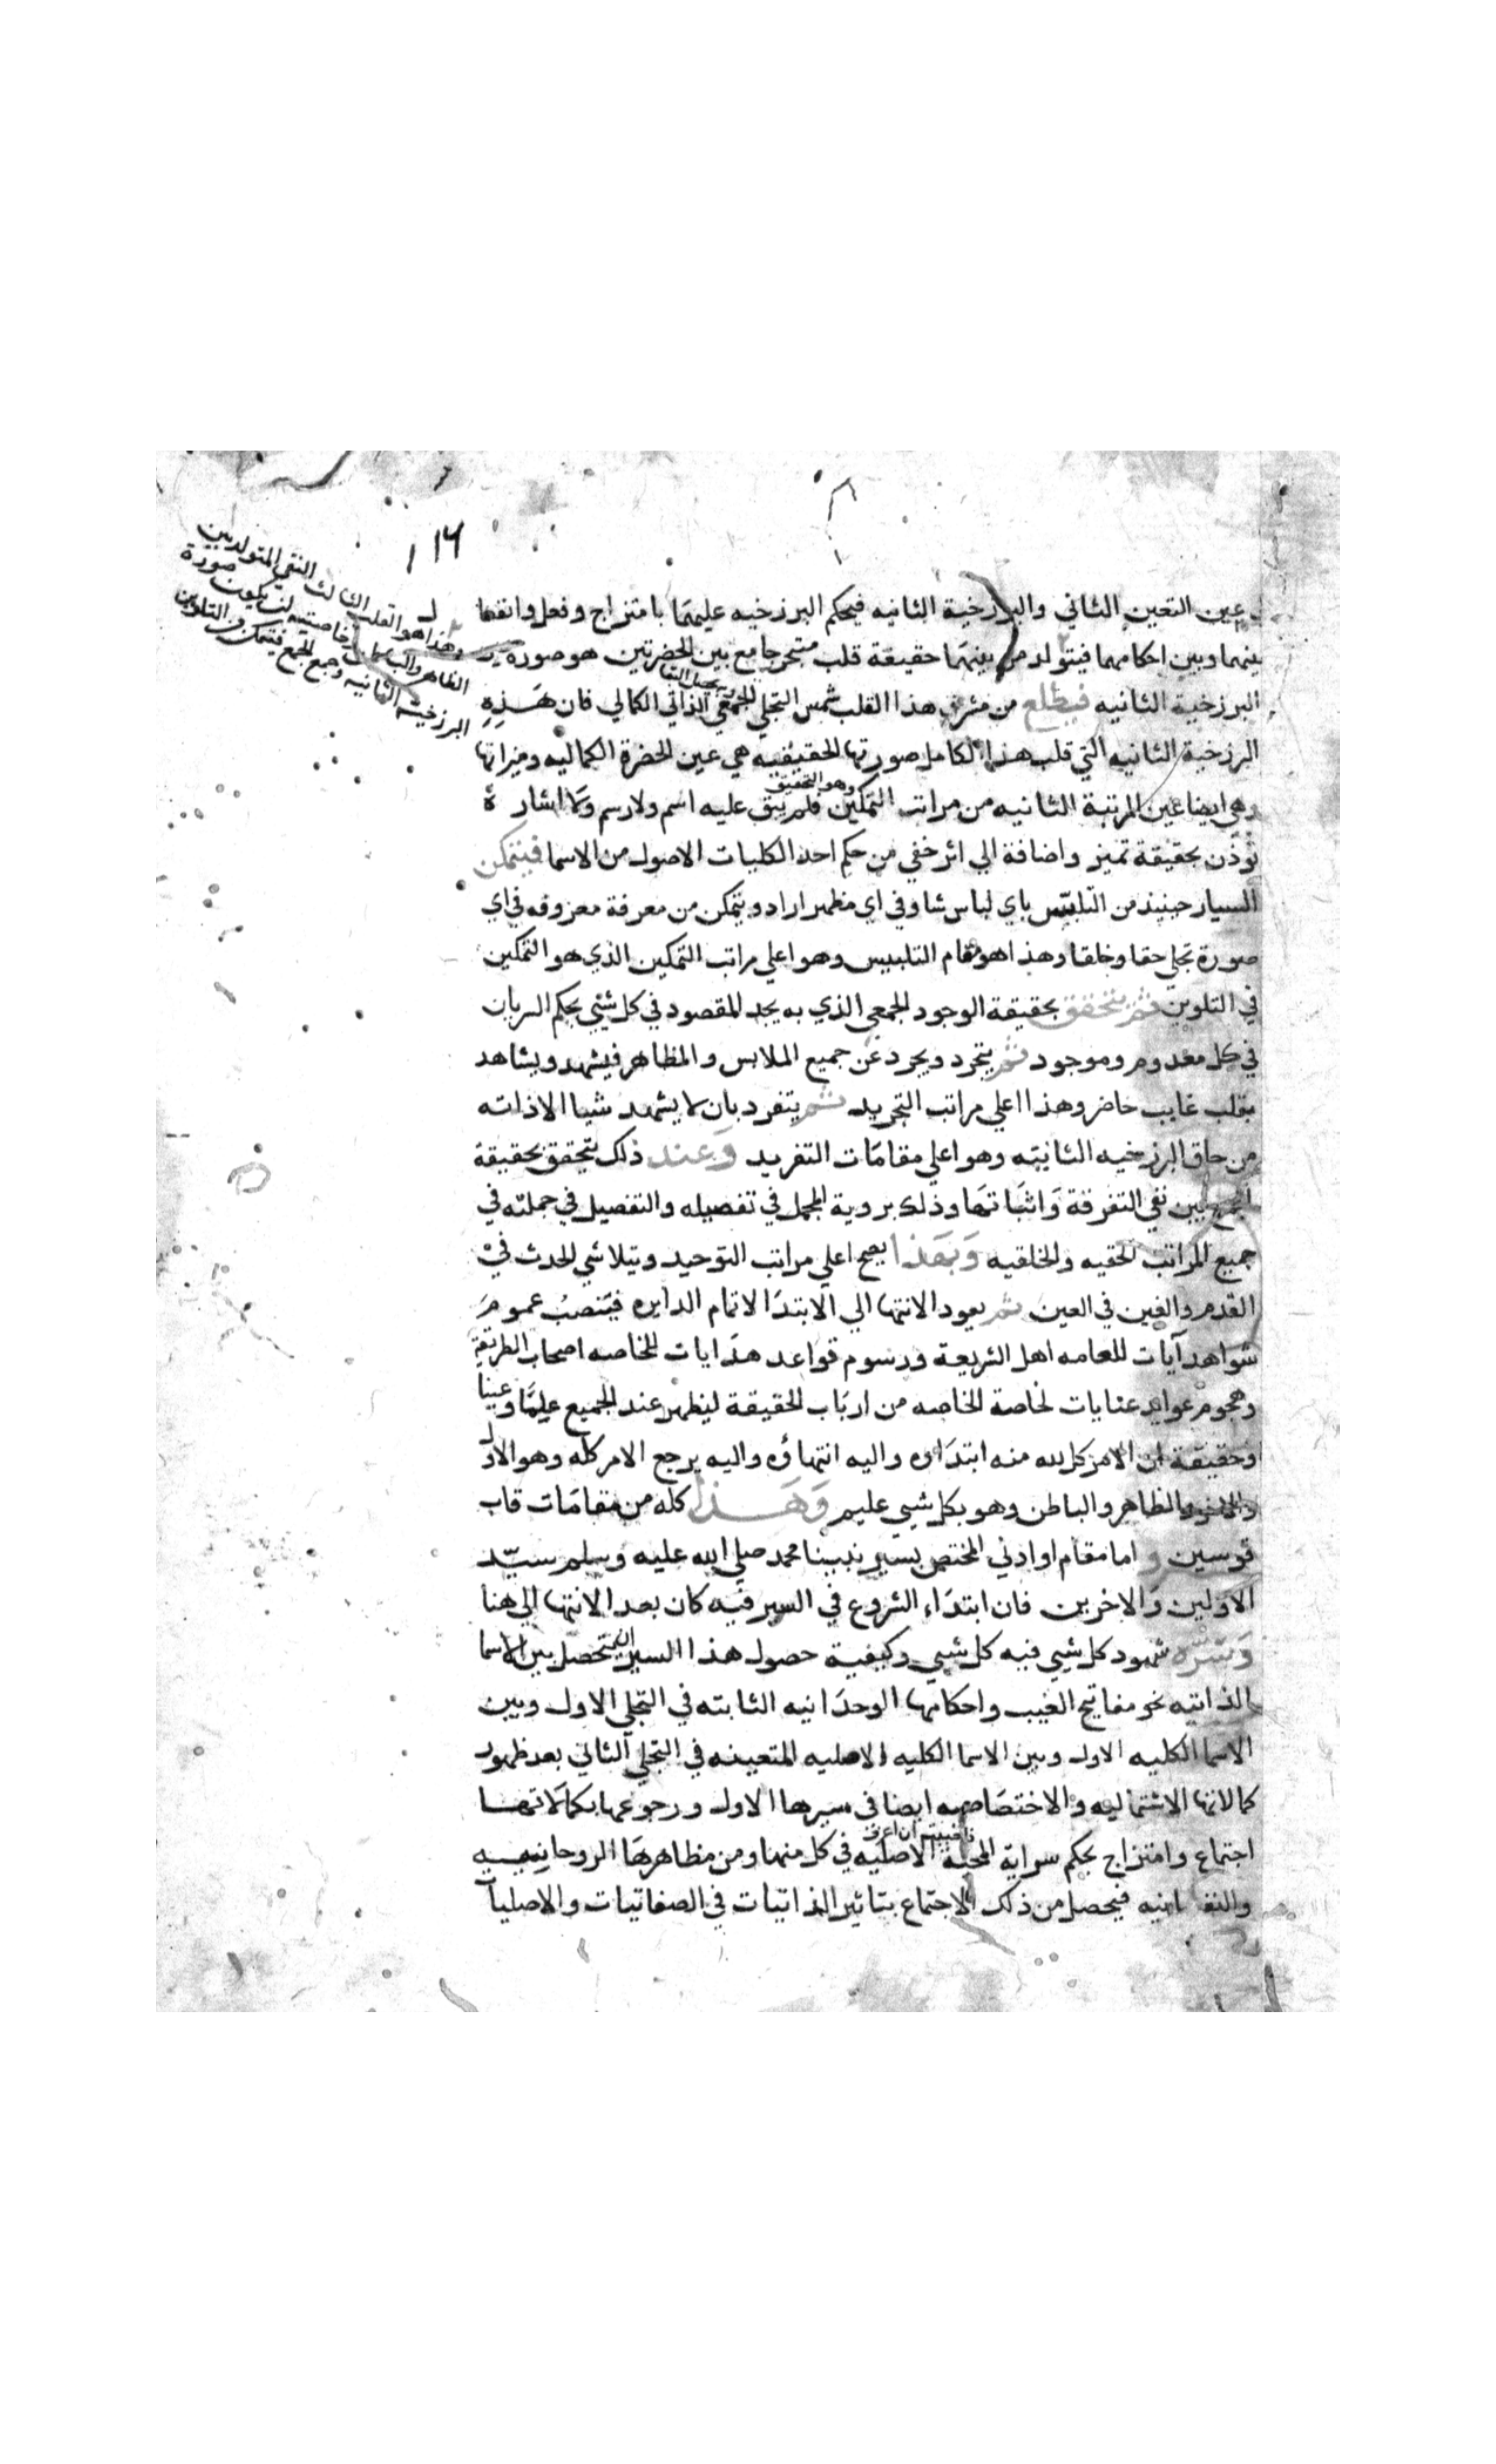 ١١٦
وهذا هو القلب الثالث النقي المتولد بين
الظاهر والباطن خاصيته ان يكون صورة
البرزخية الثانيه وجمع الجمع فيتمكن من التلوين
عين التعين الثاني والبرزخية الثانيه فيحكم البرزخيه عليهما بامتزاج وفعل وانفعا
بينهما وبين احكامهما فيتولد من بينهما حقيقة قلب متبحر جامع بين الحضرتين هو صورة
البرزخية الثانيه فيطلع من مشرق هذا القلب شمس التجلي الجمعي الذاتي الكمالي فان هذه
البرزخية الثانيه التي قلب هذا الكامل صورتها الحقيقيه هي عين الحضرة الكماليه وميزانها
وهي ايضا عين المرتبة الثانيه من مراتب التمكين وهو التحقيق فلم يبق عليه اسم ولا رسم ولا اشارة
تؤذن بحقيقة تميز واضافة الي اثر خفي من حكم احد الكليات الاصول من الاسما فيتمكن
السيار حينيذ من التلبس باي لباس شا وفي اي مظهر اراد ويتمكن من معرفة معروفه في اي
صورة تجلي حقا وخلقا وهذا هو مقام التلبيس وهو اعلي مراتب التمكين الذي هو التمكين
في التلوين ثم يتحقق بحقيقة الوجود الجمعي الذي به يجد المقصود في كل شي بحكم السريان
في كل معدوم وموجود ثم يتجرد ويجرد عن جميع الملابس والمظاهر فيشهد ويشاهد
بقلب غايب حاضر وهذا اعلي مراتب التجريد ثم يتفرد بان لا يشهد شيا الا ذاته
من حاق البرزخيه الثانيه وهو اعلي مقامات التفريد وعند ذلك يتحقق بحقيقة
الجمع بين نفي التفرقة واثباتها وذلك بروية المجمل في تفصيله والتفصيل في جملته في
جميع المراتب الحقيه والخلقيه وبهذا يصح اعلي مراتب التوحيد ويتلاشي الحدث في
القدم والغين في العين ثم يعود الانتها الي الابتدا لاتمام الدايره فيتنصب عموم
شواهد آيات للعامه اهل الشريعة ورسوم قواعد هدايات للخاصه اصحاب الطريقة
وهجوم عوايد عنايات لخاصة الخاصه من ارباب الحقيقة ليظهر عند الجميع علما وعينا
وحقيقة ان الامر كله لله منه ابتداؤه واليه انتهاؤه واليه يرجع الامر كله وهو الاول
والاخر والظاهر والباطن وهو بكل شيي عليم وهذا كله من مقامات قاب
قوسين و اما مقام او ادني المختص بسير نبينا محمد صلي الله عليه وسلم سيد
الاولين والاخرين فان ابتداء الشروع في السير فيه كان بعد الانتها الي هنا
شهود كل شيي فيه كل شيي وكيفية حصول هذا السير بين الاسما
الذاتيه نحو مفاتيح الغيب واحكامها الوحدانيه الثابته في التجلي الاول وبين
الاسما الكليه الاول وبين الاسما الكليه الاصليه المتعينه في التجلي الثاني بعد ظهور
كمالاتها الاشتماليه والاختصاصيه ايضا في سيرها الاول ورجوعها بكمالاتها
اجتماع وامتزاج بحكم سراية المحبة الاصليه في كل منها ومن مظاهرها الروحانيه
والنفسانيه فيحصل من ذلك الاجتماع بتاثير الذاتيات في الصفاتيات والاصليات